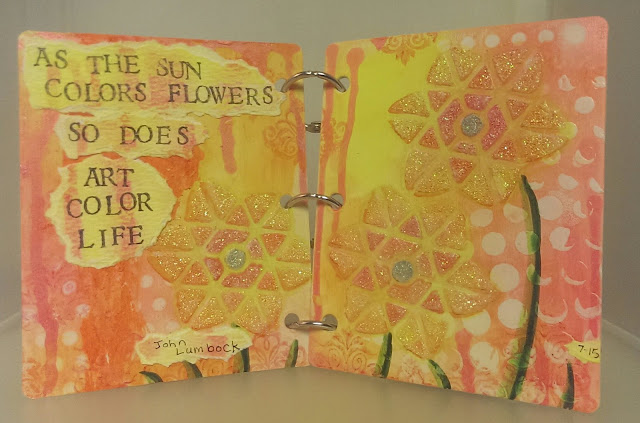 AS THE SUN
COLORS FLOWERS
SO DOES
ART
COLOR
LIFE
John
Lumbock
7-15